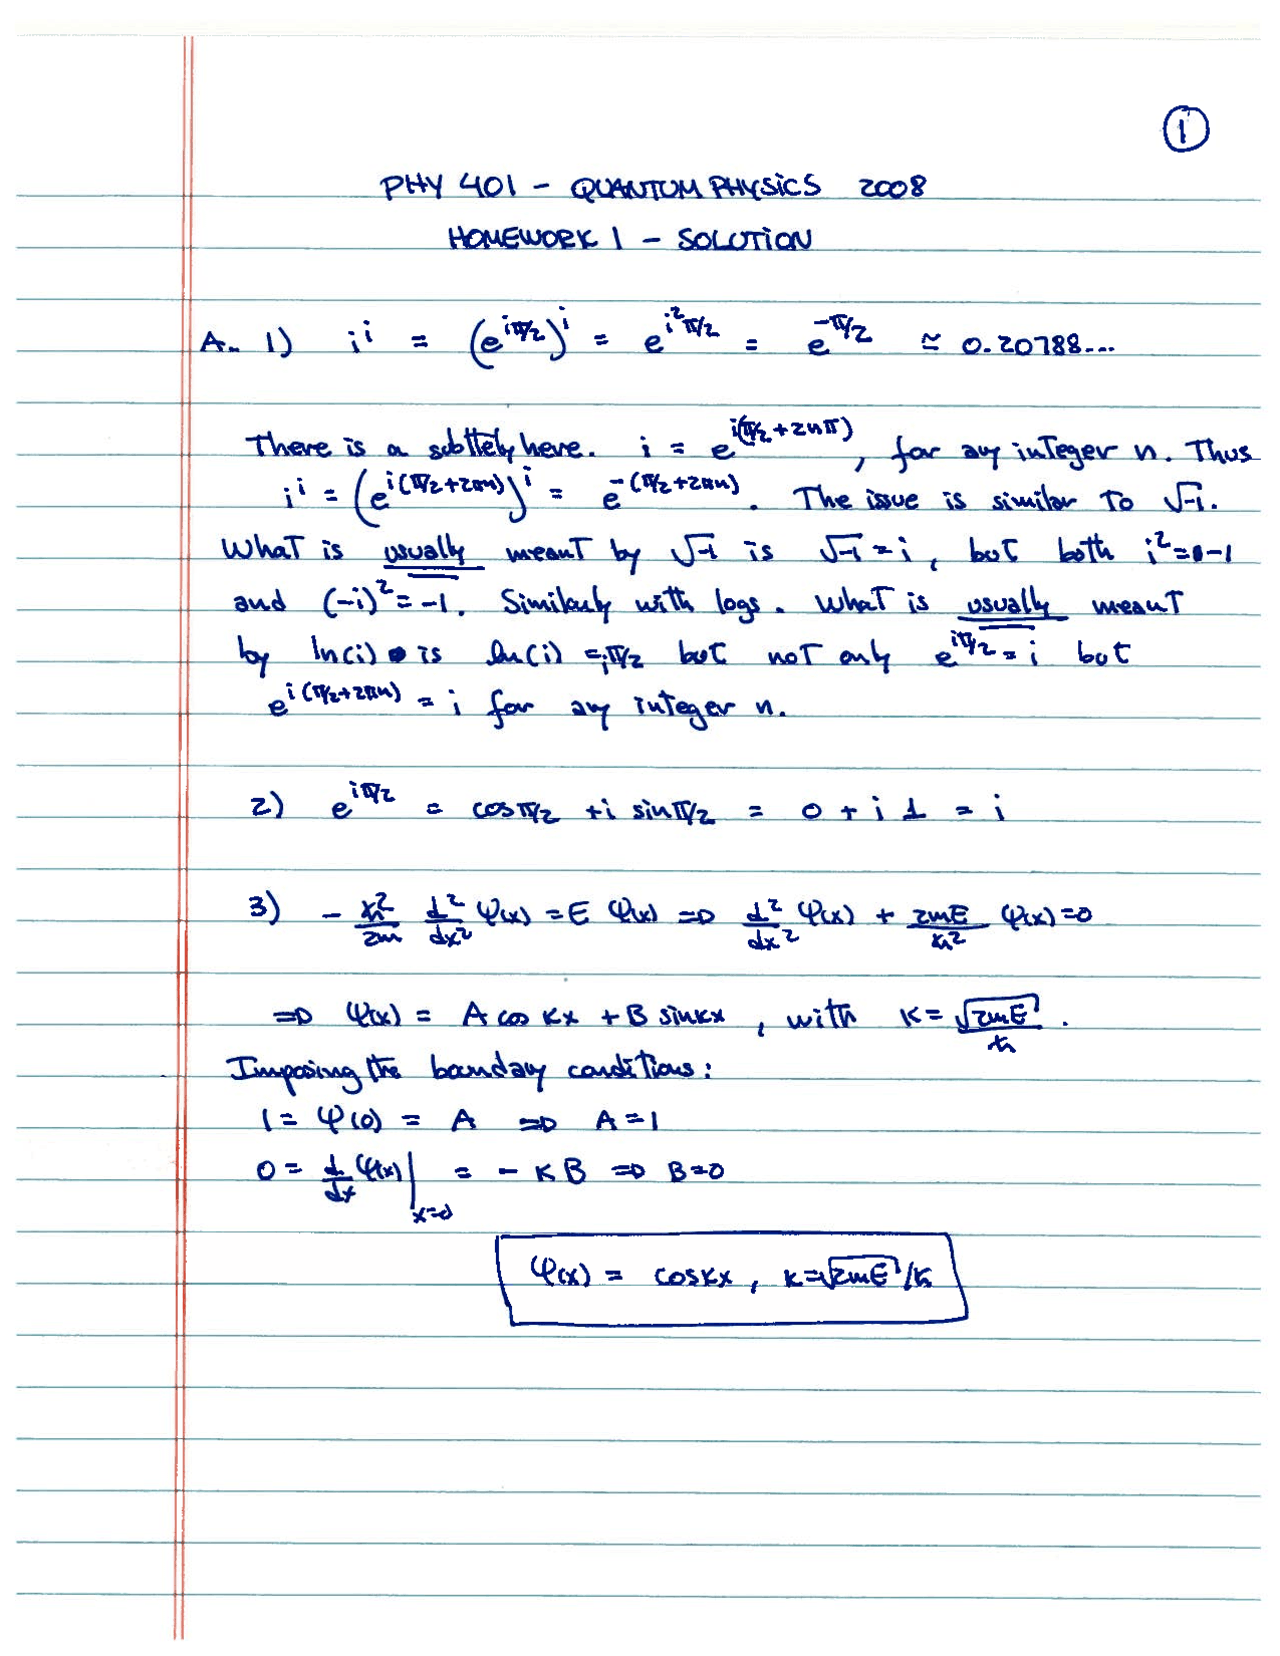 1
PHY 401 - QUANTUM PHYSICS 2008
HOMEWORK 1 - SOLUTION
A. 1) i^i = (e^{iπ/2})^i = e^{i²π/2} = e^{-π/2} ≃ 0.20788...
There is a subttlety here. i = e^{i(π/2+2nπ)}, for any integer n. Thus
i^i = (e^{i(π/2+2πn)})^i = e^{-(π/2+2πn)}. The issue is similar to √-1.
What is usually meant by √-1 is √-1 = i, but both i² = -1
and (-i)² = -1. Similarly with logs. What is usually meant
by ln(i) is ln(i) = iπ/2 but not only e^{iπ/2} = i but
e^{i(π/2+2πn)} = i for any integer n.
2) e^{iπ/2} = cos π/2 + i sin π/2 = 0 + i 1 = i
3) - ħ²/2m d²/dx² ψ(x) = E ψ(x) ⇒ d²/dx² ψ(x) + 2mE/ħ² ψ(x) = 0
⇒ ψ(x) = A cos kx + B sin kx, with k = √2mE / ħ.
Imposing the bounday conditions:
1 = ψ(0) = A ⇒ A = 1
0 = d/dx ψ(x)|_{x=0} = - k B ⇒ B = 0
ψ(x) = cos kx, k = √2mE /ħ